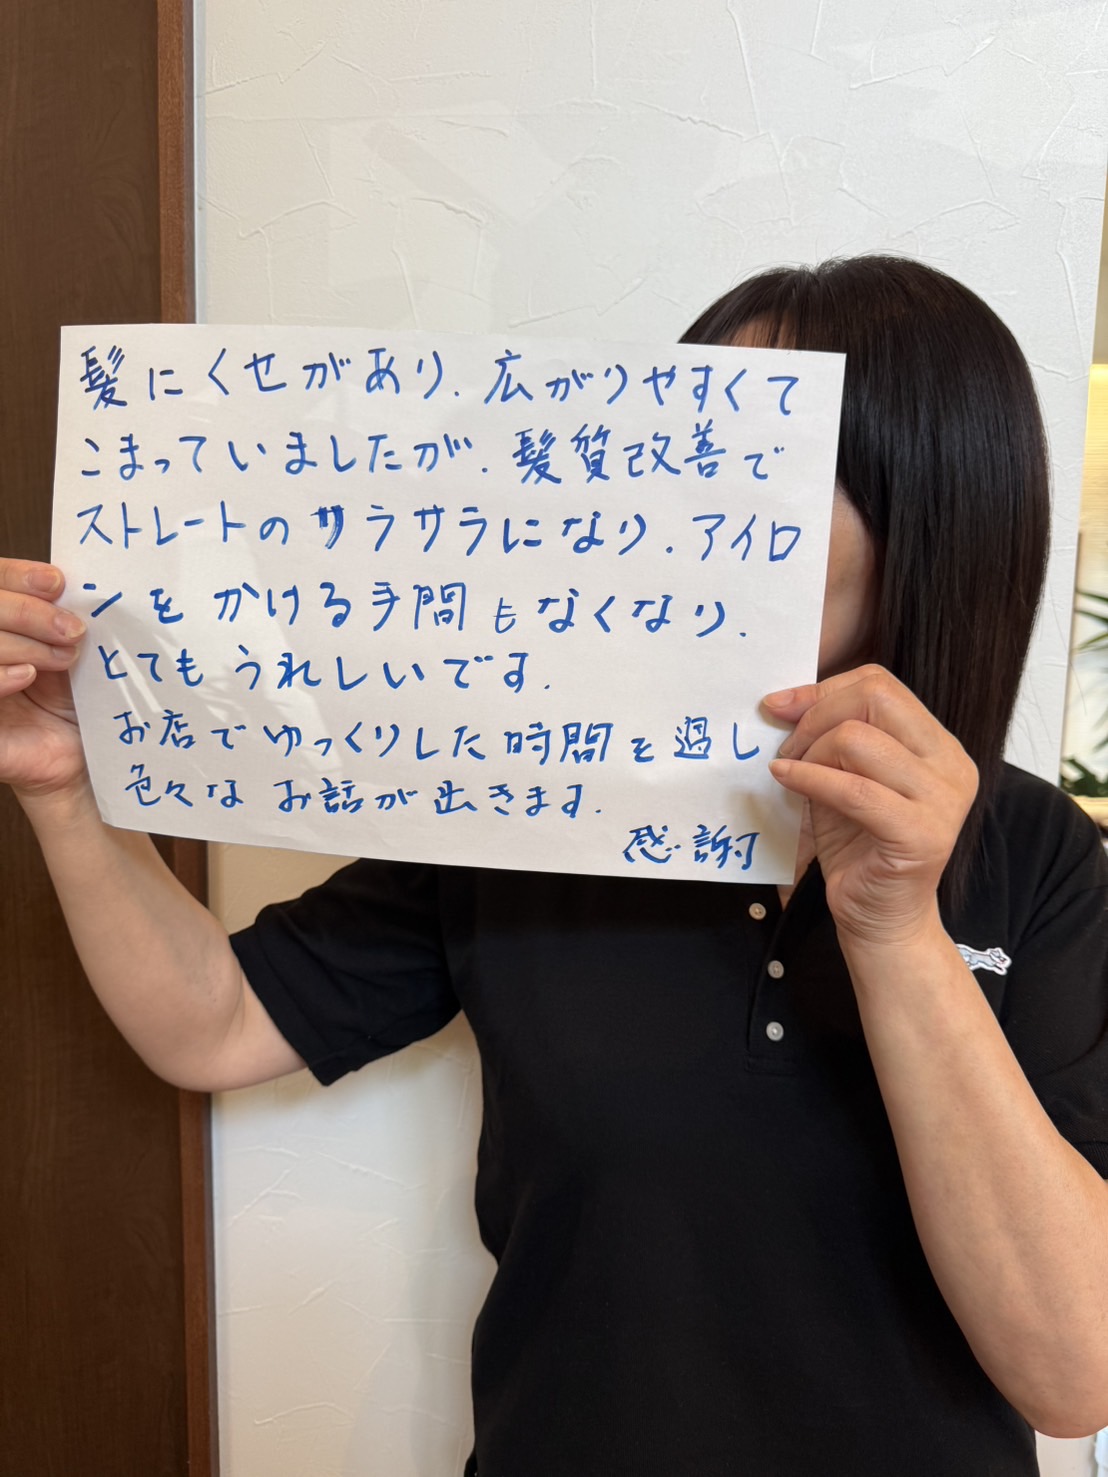 髪にくせがあり、広がりやすくて
こまっていましたが、髪質改善で
ストレートのサラサラになり、アイロ
ンをかける手間もなくなり、
とてもうれしいです。
お店でゆっくりした時間を過し
色々なお話が出きます。
感謝